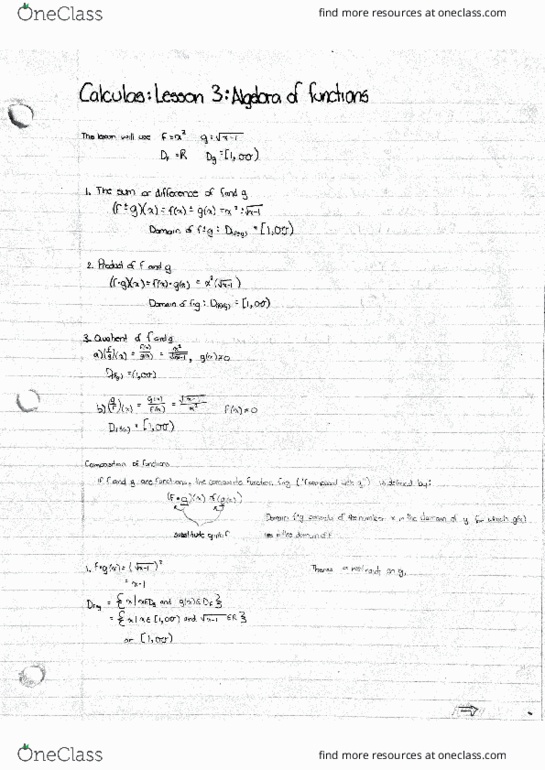 OneClass
find more resources at oneclass.com
Calculas: Lesson 3: Algebra of functions
The lesson will use f=x² g=√x-1
Df =R Dg =[1,∞)
1. The sum or difference of f and g
(f±g)(x) = f(x) ± g(x) = x² ± √x-1
Domain of f±g : D(f±g) = [1,∞)
2. Product of f and g
(f·g)(x) = f(x)·g(x) = x²(√x-1)
Domain of f·g : D(f·g) = [1,∞)
3. Quotient of f and g
a) (f/g)(x) = f(x)/g(x) = x²/√x-1 , g(x)≠0
D(f/g) = (1,∞)
b) (g/f)(x) = g(x)/f(x) = √x-1/x² f(x)≠0
D(g/f) = [1,∞)
Composition of functions
If f and g are functions, the composite function, f∘g ("f composed with g") is defined by:
(f∘g)(x) = f(g(x))
substitute g into f
Domain f∘g consists of the number x in the domain of g for which g(x)
in the domain of f
1. f∘g(x) = (√x-1)²
= x-1
Df∘g = {x | x∈Dg and g(x)∈Df}
= {x | x∈[1,∞) and √x-1 ∈R}
or [1,∞)
on g,
OneClass
find more resources at oneclass.com